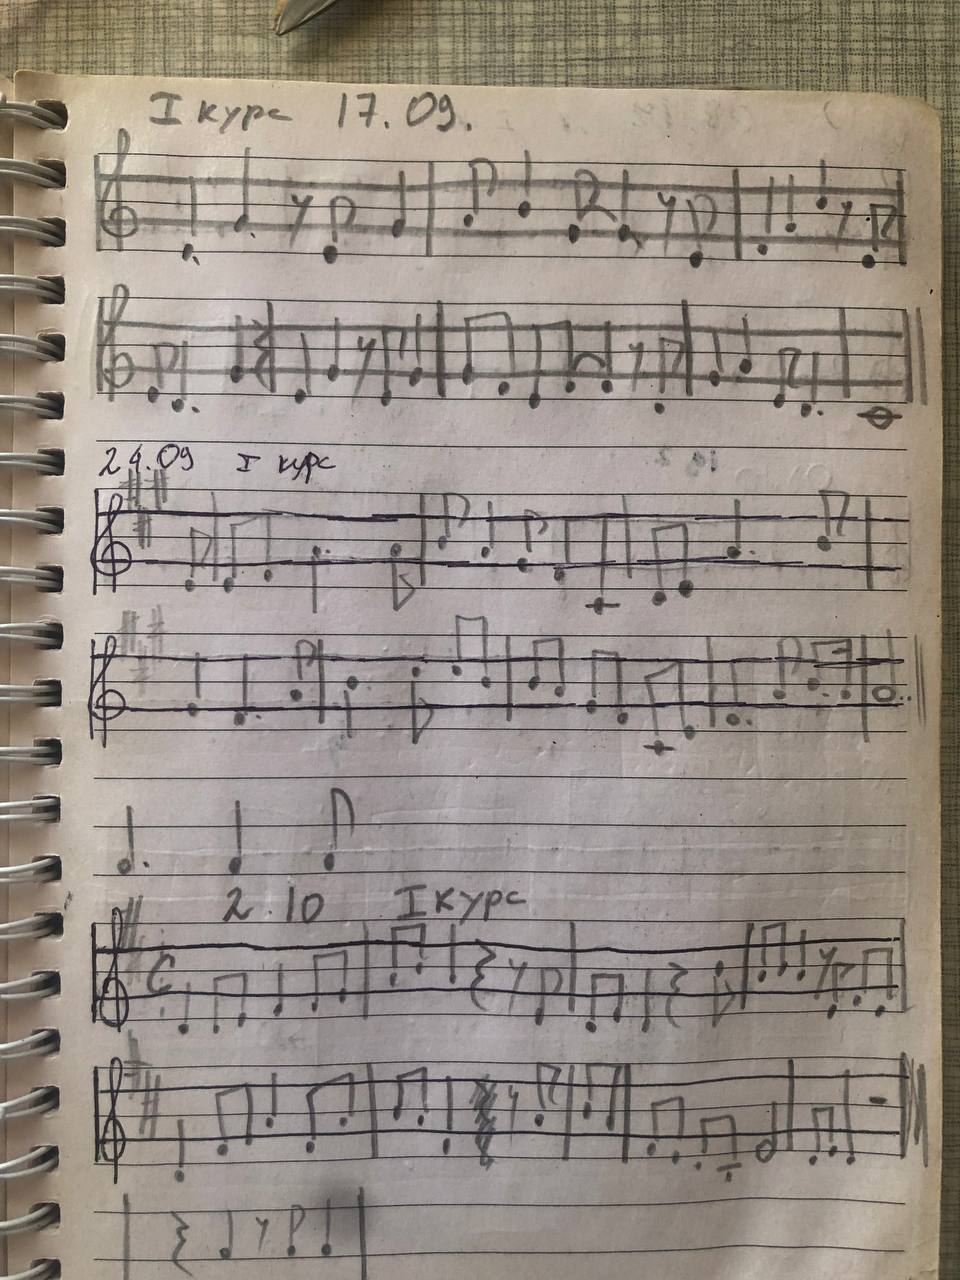 I курс 17.09.
24.09 I курс
2.10 I курс
C